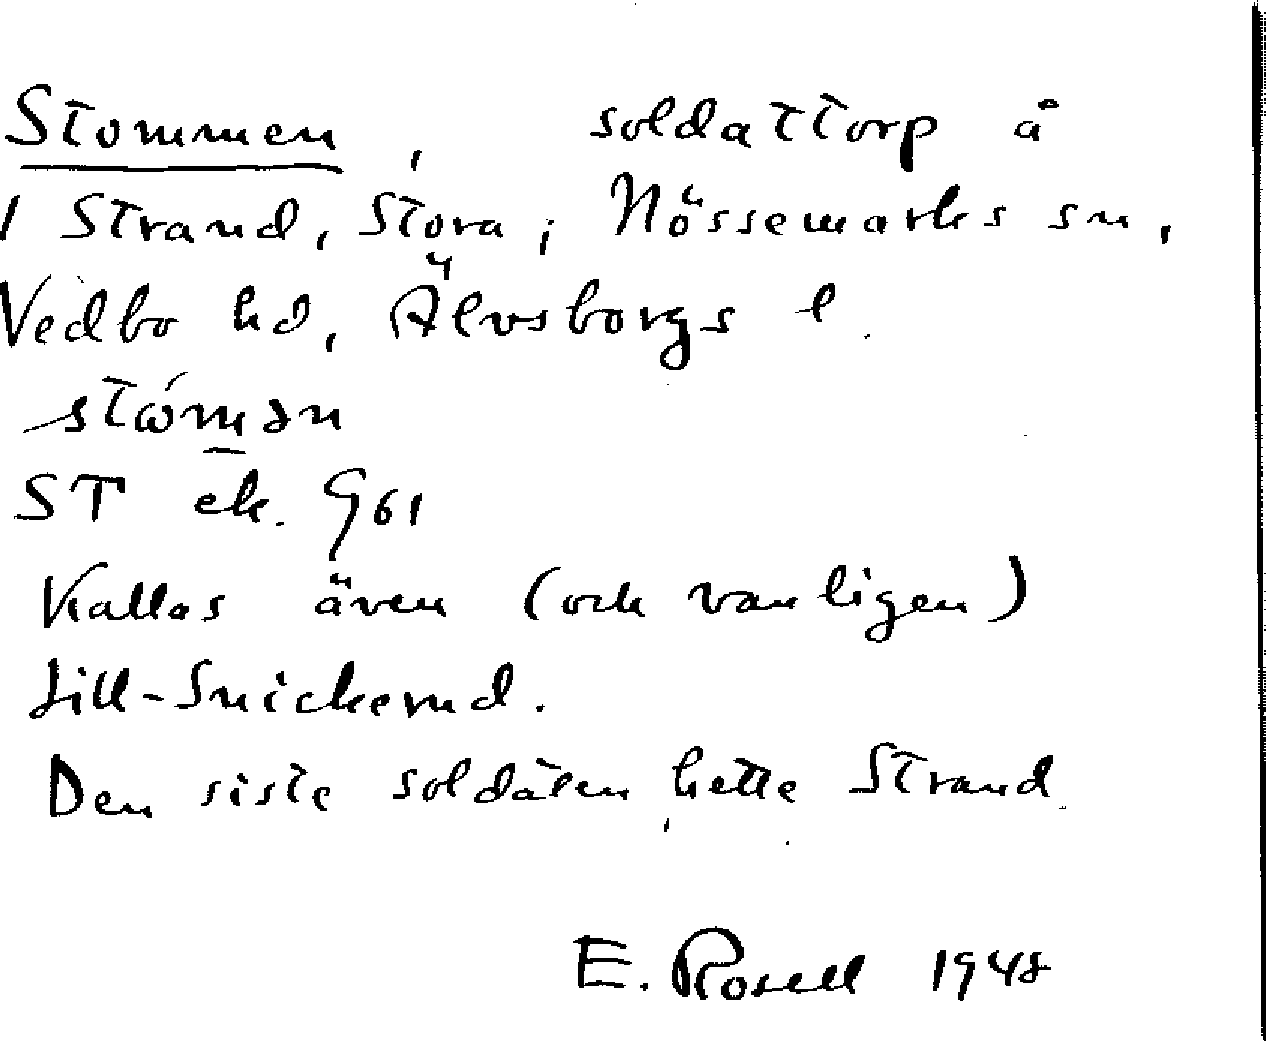 Stommen, soldattorp å
1 Strand, Stora, i Nössemarks sn,
Vedbo hd, Älvsborgs l.
stώmən
ST ek. G61
Kallas även (och vanligen)
Lill-Snickerud.
Den siste soldaten hette Strand
E. Rosell 1948